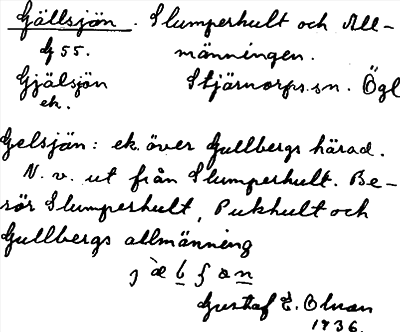 Gällsjön. Slumperhult och All-
G 55. männingen.
Gjälsjön Stjärnorps sn. Ögl
ek.
Gelsjön: ek. över Gullbergs härad.
N. v. ut från Slumperhult. Be-
rör Slumperhult, Pukhult och
Gullbergs allmänning
Gustaf E. Olson
1936.